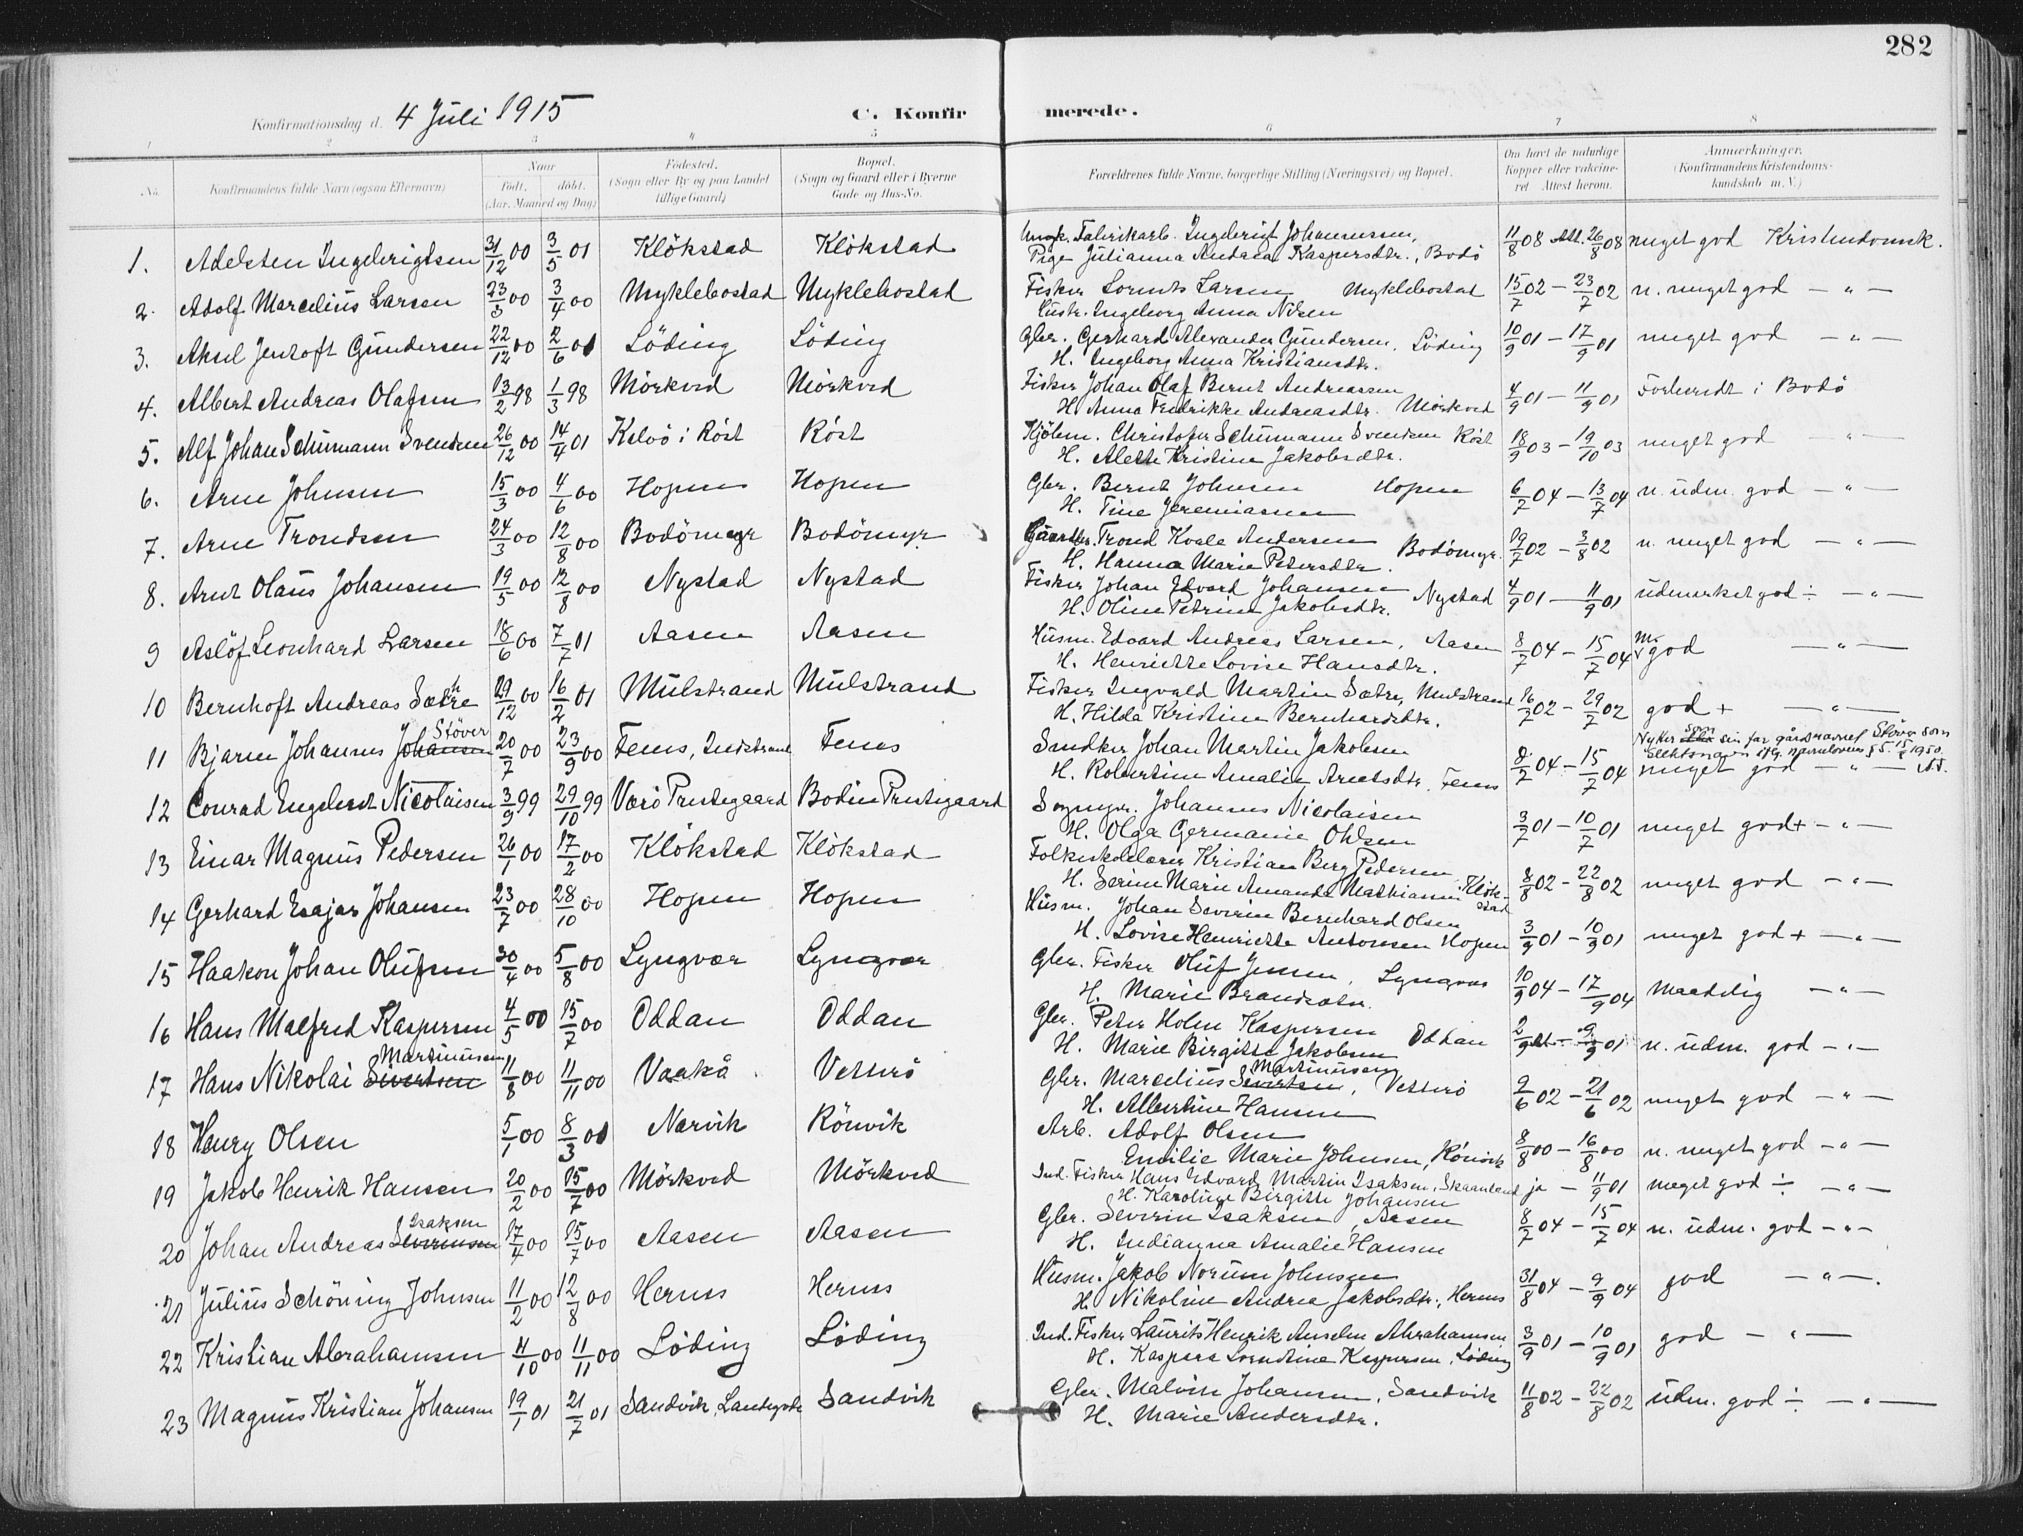 282
Konfirmationsdag d. 4 Juli 1915
C. Konfirmerede.
1 2 3 4 5 6 7 8
No. Konfirmandens fulde Navn (ogsaa Efternavn) Naar Födt. döbt. (Aar, Maaned og Dag) Födested. (Sogn eller By og paa Landet tillige Gaard) Bopæl. (Sogn og Gaard eller i Byerne Gade og Hus-No. Forældrenes fulde Navne, borgerlige Stilling (Næringsvei) og Bopæl. Om havt de naturlige Kopper eller vakcineret Attest herom. Anmærkninger. (Konfirmandens Kristendomskundskab m. V.)
1. Adelsten Ingebrigtsen 31/12 00 3/5 01 Klökstad Klökstad Ungk. Fabrikarb. Ingebrigt Johannessen, 11/8 08 Att. 26/8 08 meget god Kristendomsk.
Pige Julianna Andaea Kaspersdtr., Bodö
2. Adolf Marcelius Larsen 23/3 00 3/4 00 Myklebostad Myklebostad Fisker Lorents Larsen Myklebostad 15/7 02 – 23/7 02 n. meget god – " –
Hustr. Ingeborg Anna Nilsen
3. Aksel Jentoft Gundersen 22/12 00 2/6 01 Löding Löding Gbr. Gerhard Alexander Gundersen, Löding 10/9 01 – 17/9 01 meget god – " –
H. Ingeborg Anna Kristiansdtr.
4. Albert Andreas Olafsen 13/2 98 1/3 98 Mörkved Mörkved Fisker Johan Olaf Bernt Andreassen 4/9 01 – 11/9 01 Forberedt i Bodö
H. Anna Fredrikke Andreasdtr. Mörkved
5. Alf Johan Schumann Svendsen 26/12 00 14/4 01 Kelvö i Röst Röst Kjöbm. Christofer Schumann Svendsen Röst 18/9 03 – 19/10 03 meget god – " –
H. Alette Kristine Jakobsdtr.
6. Arne Johnsen 15/3 00 4/6 00 Hopen Hopen Gbr. Bernt Johnsen Hopen 6/7 04 – 13/7 04 n. udm. god – " –
H. Tine Jeremiassen
7. Arne Trondsen 24/3 00 12/8 00 Bodömyr Bodömyr. Gaardbr. Trond Kvale Andersen Bodömyr. 19/7 02 – 3/8 02 n. meget god – " –
H. Hanna Marie Petersdtr.
8. Arnt Olaus Johansen 19/5 00 12/8 00 Nystad Nystad Fisker Johan Edvard Johansen Nystad 4/9 01 – 11/9 01 udmerket god ÷ – " –
H. Oline Petrine Jakobsdtr.
9 Aslöf Leonhard Larsen 18/6 00 7/7 01 Aasen Aasen Husm. Edvard Andreas Larsen, Aasen 8/7 04 – 15/7 04 M. god – " –
H. Henriette Lovise Hansdtr.
10 Bernhoft Andreas Sætre 29/12 00 16/2 01 Mulstrand Mulstrand Fisker Ingvald Martin Sætre, Mulstrand 16/7 02 – 29/7 02 god + – " –
H. Hilda Kristine Bernhardsdtr.
Stöver
11 Bjarne Johannes Johansen 20/7 00 23/9 00 Fenes, Indstrand Fenes Smedker Johan Martin Jakobsen 8/7 04 – 15/7 04 meget god – " –
H. Robertine Amalie Arntsdtr. Fenes
12 Conrad Engebret Nicolaisen 3/9 99 29/10 99 Værö Prestegaard Bodin Prestegaard Sognepr. Johannes Nicolaisen 3/7 01 – 10/7 01 meget god + – " –
H. Olga Germanie Ohlsen
13 Einar Magnus Pedersen 26/1 00 17/2 00 Klökstad Klökstad Folkeskolelærer Kristian Berg Pedersen 8/8 02 – 22/8 02 meget god – " –
H. Serine Marie Amanda Mathiassen Klökstad
14 Gerhard Esajas Johansen 23/7 00 28/10 00 Hopen Hopen Husm. Johan Severin Bernhard Olsen 3/9 01 – 10/9 01 meget god + – " –
H. Lovise Henriette Antonsen Hopen
15 Haakon Johan Olufsen 30/4 00 5/8 00 Lyngvær Lyngvær Gbr. Fisker Oluf Jensen, Lyngvær 10/9 04 – 17/9 04 maadelig – " –
H. Marie
16 Hans Malfred Kaspersen 4/5 00 15/7 00 Oddan Oddan Gbr. Peter Holm Kaspersen Oddan 2/9 01 – 9/9 01 n. udm. god – " –
H. Marie Birgitte Jakobsen
Martinussen Martinussen
17 Hans Nikolai Sivertsen 11/8 00 11/11 00 Vaakå Vetterö Gbr. Marcelius Sivertsen, Vetterö 9/6 02 – 21/6 02 meget god – " –
H. Albertine Hansen
18 Henry Olsen 5/1 00 8/3 01 Narvik Rönvik Arb. Adolf Olsen 8/8 00 – 16/8 00 n. meget god – " –
Emilie Marie Johnsen, Rönvik
19 Jakob Henrik Hansen 20/2 00 15/7 00 Mörkved Mörkved Ind. Fisker Hans Edvard Martin Isaksen, Skaanland ja – 11/9 01 meget god ÷ – " –
H. Karoline Birgitte Johansen
Isaksen
20 Johan Andreas Severinsen 17/4 00 15/7 00 Aasen Aasen Gbr. Severin Isaksen, Aasen 8/7 04 – 15/7 04 n. udm. god – " –
H. Indianna Amalie Hansen
21 Julius Schöning Johnsen 11/2 00 12/8 00 Hernes Hernes Husm. Jakob Norum Johnsen 31/8 04 – 9/9 04 god – " –.
H. Nikoline Andrea Jakobsdtr., Hernes
22 Kristian Abrahamsen 11/10 00 11/11 00 Löding Löding Ind. Fisker Laurits Henrik Anselm Abrahamsen 3/9 01 – 10/9 01 god – " –
H. Kaspara Lorentine Kaspersen, Löding
23 Magnus Kristian Johansen 19/1 01 21/7 01 Sandvik, Landegode Sandvik Gbr. Malvin Johansen, Sandvik 11/8 02 – 22/8 02 udm. god ÷ – " –
H. Marie Andersdtr.